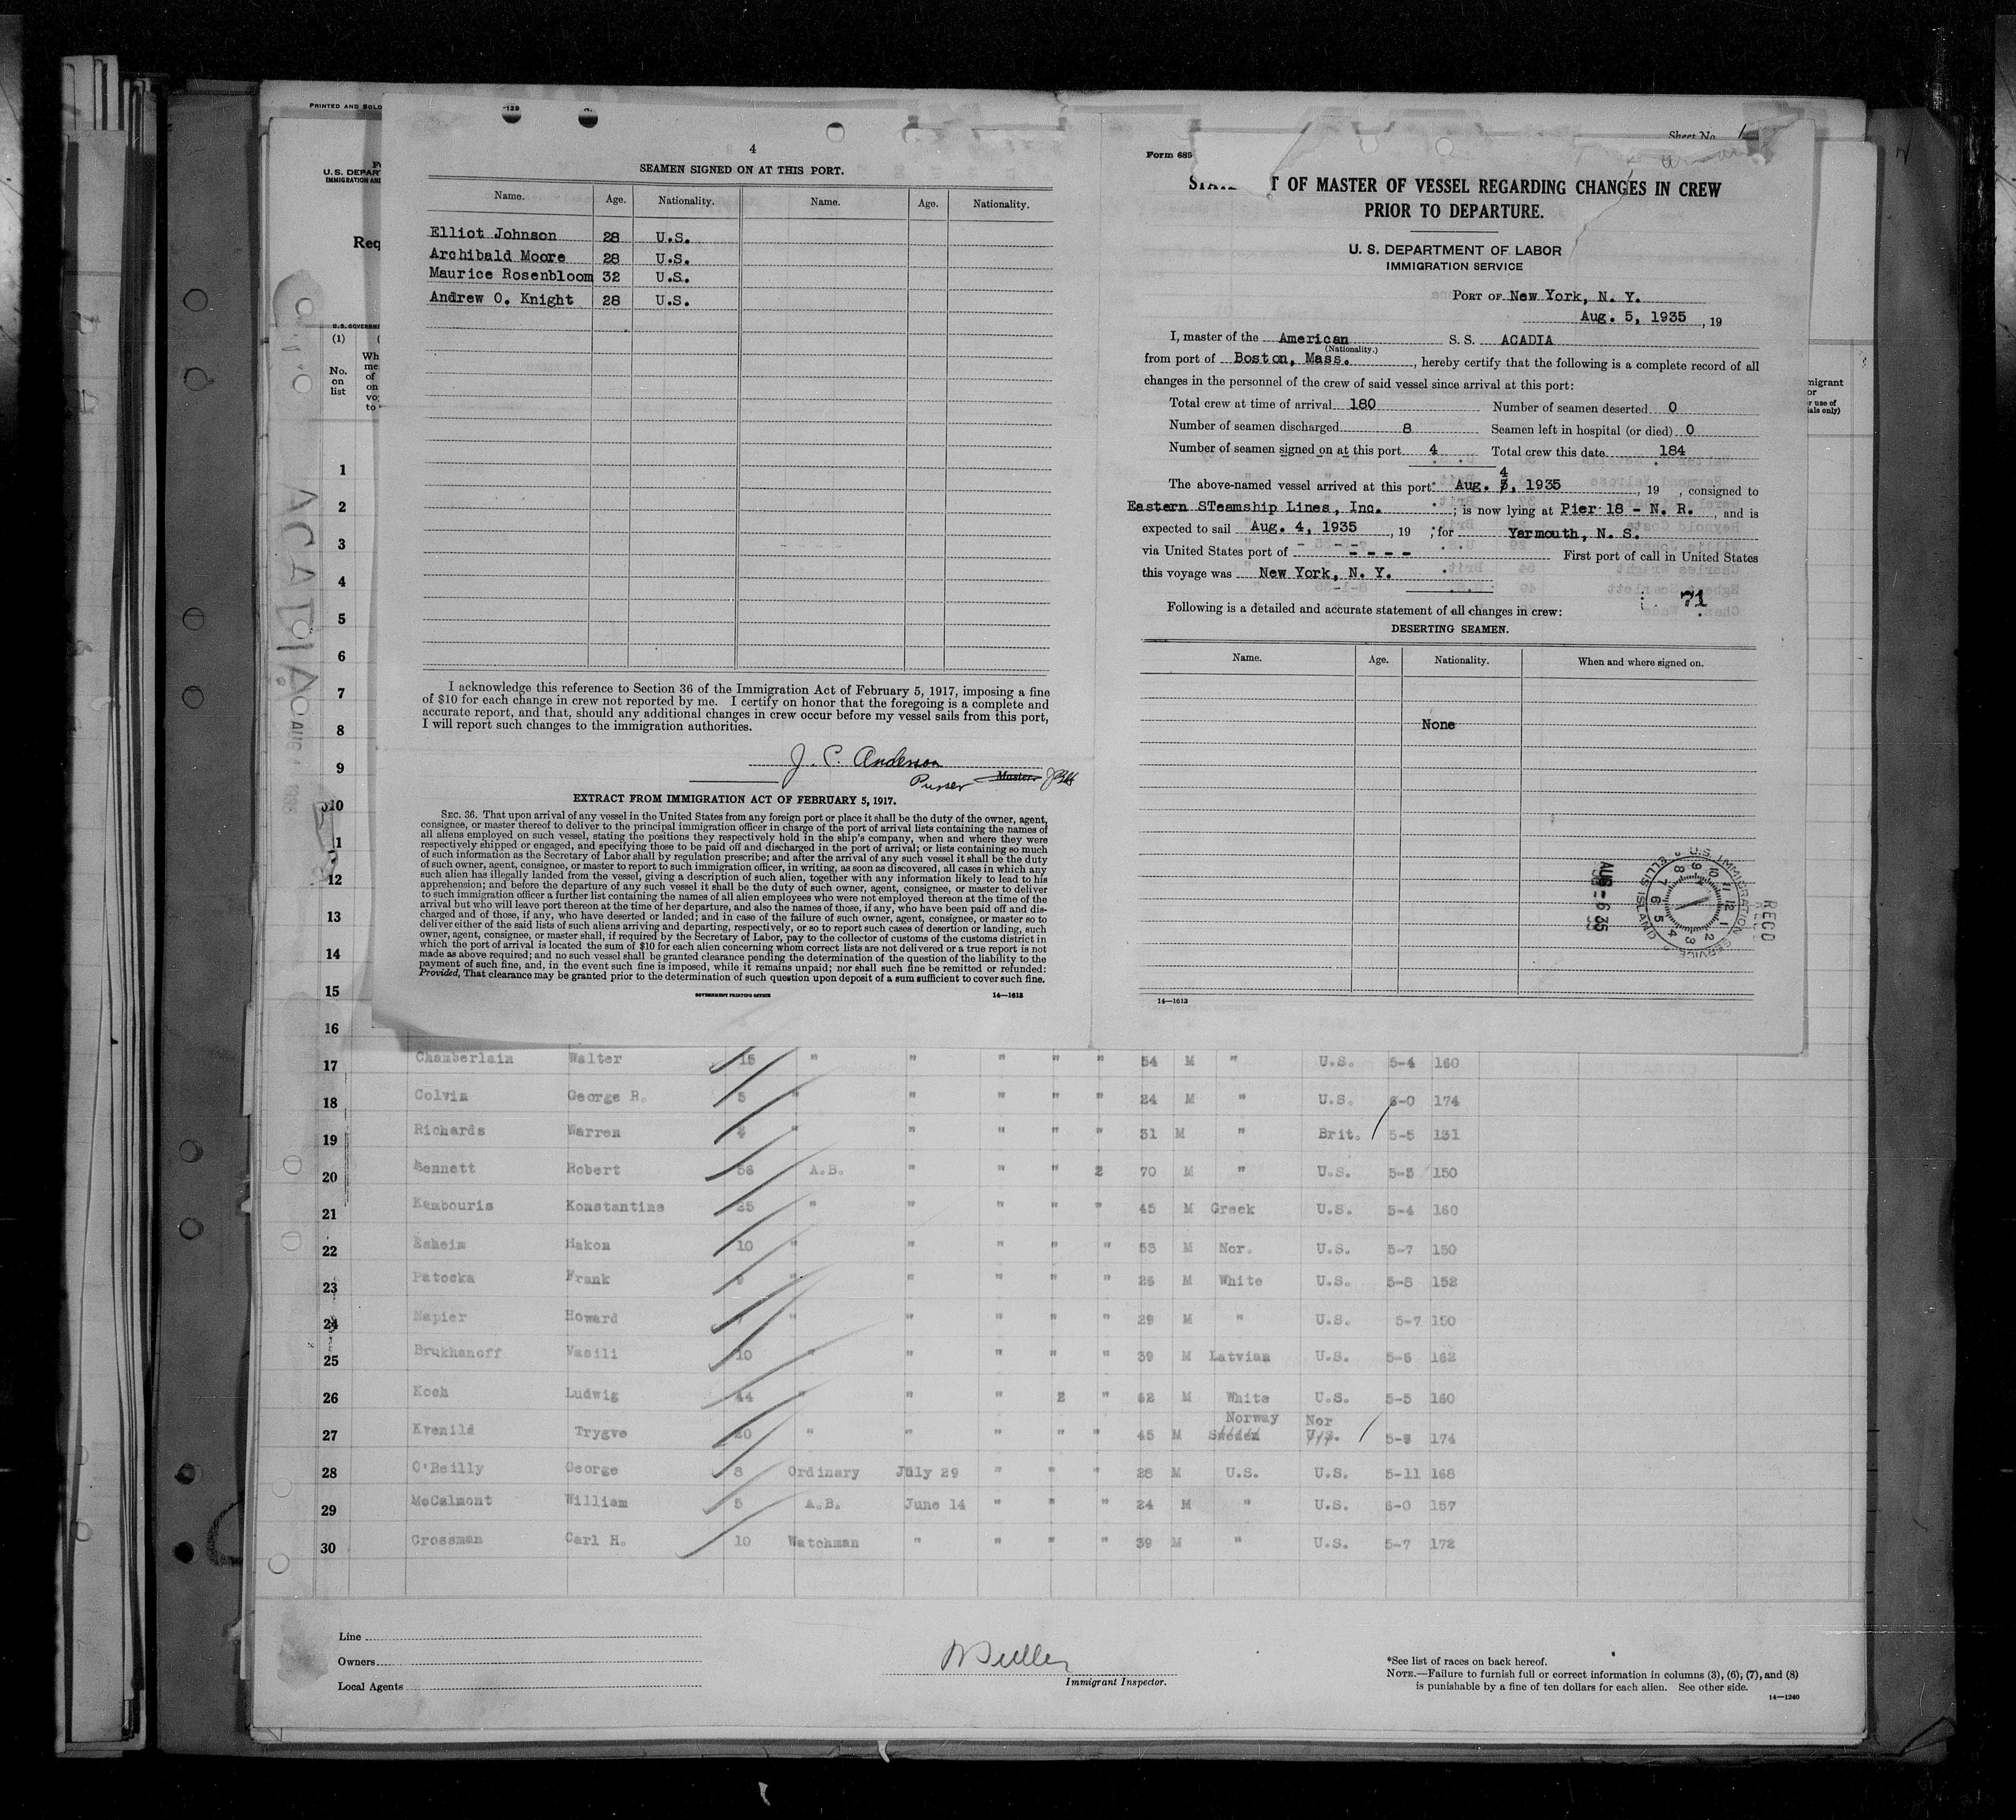 PRINTED AND SOLD
U.S. DEPAR
IMMIGRATION AN
Req
U.S. GOVERNM
(1)
No.
on
list
Wh
me
of
on
vo
to
ACADIA
129
4
SEAMEN SIGNED ON AT THIS PORT.
Name. Age. Nationality. Name. Age. Nationality.
Elliot Johnson 28 U.S.
Archibald Moore 28 U.S.
Maurice Rosenbloom 32 U.S.
Andrew O. Knight 28 U.S.
I acknowledge this reference to Section 36 of the Immigration Act of February 5, 1917, imposing a fine
of $10 for each change in crew not reported by me. I certify on honor that the foregoing is a complete and
accurate report, and that, should any additional changes in crew occur before my vessel sails from this port,
I will report such changes to the immigration authorities.
J. C. Anderson
Purser Master.
EXTRACT FROM IMMIGRATION ACT OF FEBRUARY 5, 1917.
SEC. 36. That upon arrival of any vessel in the United States from any foreign port or place it shall be the duty of the owner, agent,
consignee, or master thereof to deliver to the principal immigration officer in charge of the port of arrival lists containing the names of
all aliens employed on such vessel, stating the positions they respectively hold in the ship's company, when and where they were
respectively shipped or engaged, and specifying those to be paid off and discharged in the port of arrival; or lists containing so much
of such information as the Secretary of Labor shall by regulation prescribe; and after the arrival of any such vessel it shall be the duty
of such owner, agent, consignee, or master to report to such immigration officer, in writing, as soon as discovered, all cases in which any
such alien has illegally landed from the vessel, giving a description of such alien, together with any information likely to lead to his
apprehension; and before the departure of any such vessel it shall be the duty of such owner, agent, consignee, or master to deliver
to such immigration officer a further list containing the names of all alien employees who were not employed thereon at the time of the
arrival but who will leave port thereon at the time of her departure, and also the names of those, if any, who have been paid off and dis-
charged and of those, if any, who have deserted or landed; and in case of the failure of such owner, agent, consignee, or master so to
deliver either of the said lists of such aliens arriving and departing, respectively, or so to report such cases of desertion or landing, such
owner, agent, consignee, or master shall, if required by the Secretary of Labor, pay to the collector of customs of the customs district in
which the port of arrival is located the sum of $10 for each alien concerning whom correct lists are not delivered or a true report is not
made as above required; and no such vessel shall be granted clearance pending the determination of the question of the liability to the
payment of such fine, and, in the event such fine is imposed, while it remains unpaid; nor shall such fine be remitted or refunded:
Provided, That clearance may be granted prior to the determination of such question upon deposit of a sum sufficient to cover such fine.
GOVERNMENT PRINTING OFFICE 14—1613
Sheet No. 1
Form 685
STAT T OF MASTER OF VESSEL REGARDING CHANGES IN CREW
PRIOR TO DEPARTURE.
U. S. DEPARTMENT OF LABOR
IMMIGRATION SERVICE
PORT OF New York, N. Y.
Aug. 5, 1935, 19
I, master of the American S. S. ACADIA
(Nationality.)
from port of Boston, Mass., hereby certify that the following is a complete record of all
changes in the personnel of the crew of said vessel since arrival at this port:
Total crew at time of arrival 180 Number of seamen deserted 0
Number of seamen discharged 8 Seamen left in hospital (or died) 0
Number of seamen signed on at this port 4 Total crew this date 184
4
The above-named vessel arrived at this port Aug. 5, 1935, 19 , consigned to
Eastern STeamship Lines, Inc. ; is now lying at Pier 18 - N. R., and is
expected to sail Aug. 4, 1935, 19 ; for Yarmouth, N. S.
via United States port of - - - - First port of call in United States
this voyage was New York, N. Y.
71
Following is a detailed and accurate statement of all changes in crew:
DESERTING SEAMEN.
Name. Age. Nationality. When and where signed on.
None
RECD
U.S. IMMIGRATION SERVICE
ELLIS ISLAND
AUG - 6 35
14—1613
migrant
or
r use of
ials only)
1
2
3
4
5
6
7
8
9
10
11
12
13
14
15
16
17 Chamberlain Walter 15 " " " " " 54 M " U.S. 5-4 160
18 Colvin George R. 5 " " " " " 24 M " U.S. 6-0 174
19 Richards Warren 4 " " " " " 31 M " Brit. 5-5 131
20 Bennett Robert 56 A.B. " " " 2 70 M " U.S. 5-5 150
21 Kambouris Konstantine 25 " " " " " 45 M Greek U.S. 5-4 160
22 Esheim Hakon 10 " " " " " 53 M Nor. U.S. 5-7 150
23 Patocka Frank " " " " " 25 M White U.S. 5-8 152
24 Napier Howard " " " " " 29 M " U.S. 5-7 150
25 Brukhanoff Vasili 10 " " " " " 39 M Latvian U.S. 5-6 162
26 Koch Ludwig 44 " " " 2 " 62 M White U.S. 5-5 160
Norway Nor
27 Kvenild Trygve 20 " " " " " 45 M Sweden U.S. 5-8 174
28 O'Reilly George 8 Ordinary July 29 " " " 28 M U.S. U.S. 5-11 168
29 McCalmont William 5 A.B. June 14 " " " 24 M " U.S. 6-0 157
30 Crossman Carl H. 10 Watchman " " " " 39 M " U.S. 5-7 172
Line
Owners
Local Agents
Immigrant Inspector.
*See list of races on back hereof.
NOTE.—Failure to furnish full or correct information in columns (3), (6), (7), and (8)
is punishable by a fine of ten dollars for each alien. See other side.
14—1240